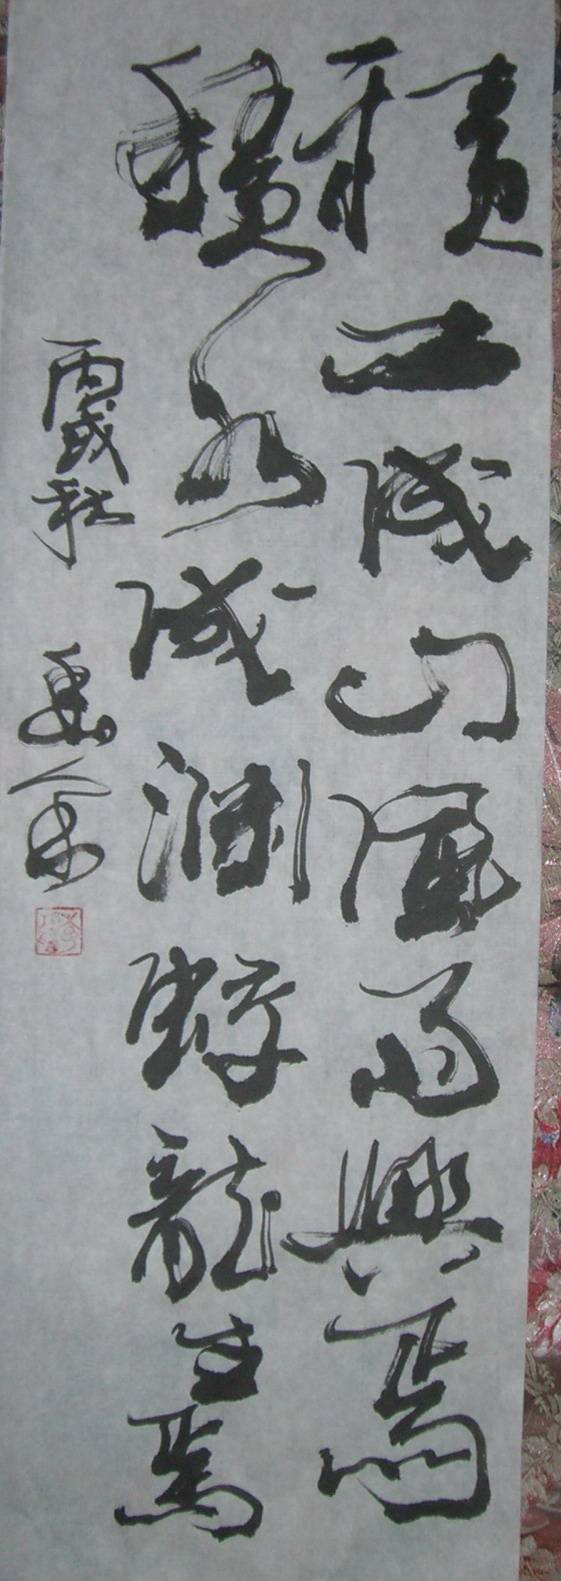 積土成山風雨興焉
積水成淵蛟龍生焉
丙戌秋